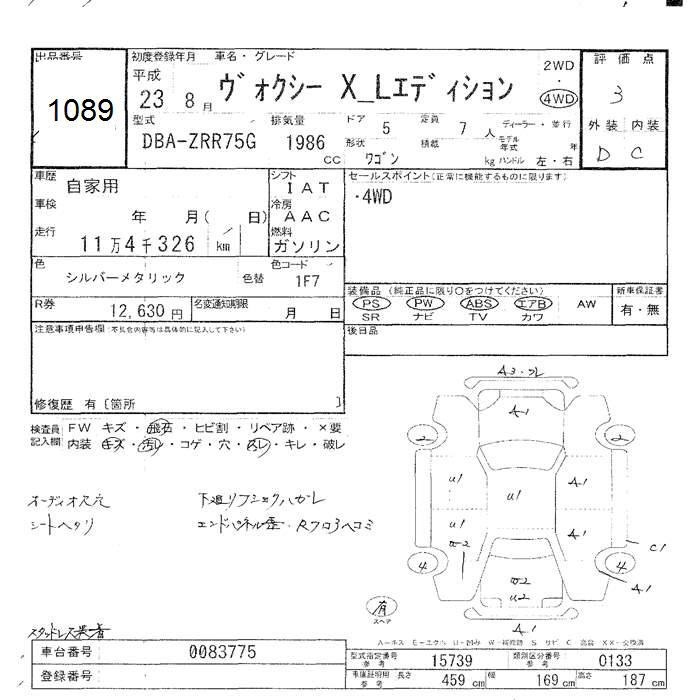 出品番号
1089
初度登録年月 車名・グレード
平成
23 8月
ヴォクシー X_Lエディション
2WD
・
4WD
評価点
3
外装 内装
D C
型式
DBA-ZRR75G
排気量
1986
CC
ドア
5
定員
7 人
形状
ワゴン
積載
kg
ディーラー・並行
モデル年式
年
ハンドル 左・右
車歴
自家用
シフト
IAT
車検
年 月( 日)
冷房
AAC
走行
11万4千326 km
燃料
ガソリン
色
シルバーメタリック
色替
色コード
1F7
R券
12,630 円
名変通知期限
月 日
セールスポイント(正常に機能するものに限ります)
・4WD
装備品 (純正品に限り〇をつけてください)
PS PW ABS エアB AW
SR ナビ TV カワ
新車保証書
有・無
後日品
注意事項申告欄(不具合内容等は具体的に記入して下さい)
修復歴 有〔箇所 〕
検査員記入欄
FW キズ・飛石・ヒビ割・リペア跡・×要
内装 キズ・汚レ・コゲ・穴・スレ・キレ・破レ
オーディオ欠穴
シートヘタリ
下廻リフショックハガレ
エンドパネル歪・Rフロアヘコミ
A3・ワレ
A1
2
2
U1
A1
U1
U1
A1
C1
4
4
A1
U2
A1
有
スペア
スタッドレス装着
A-キズ E-エクボ U-凹み W-補修跡 S サビ C 腐食 XX-交換済
車台番号
0083775
登録番号
型式指定番号
参考
15739
類別区分番号
参考
0133
車庫証明用
参考
長さ
459 cm
幅
169 cm
高さ
187 cm